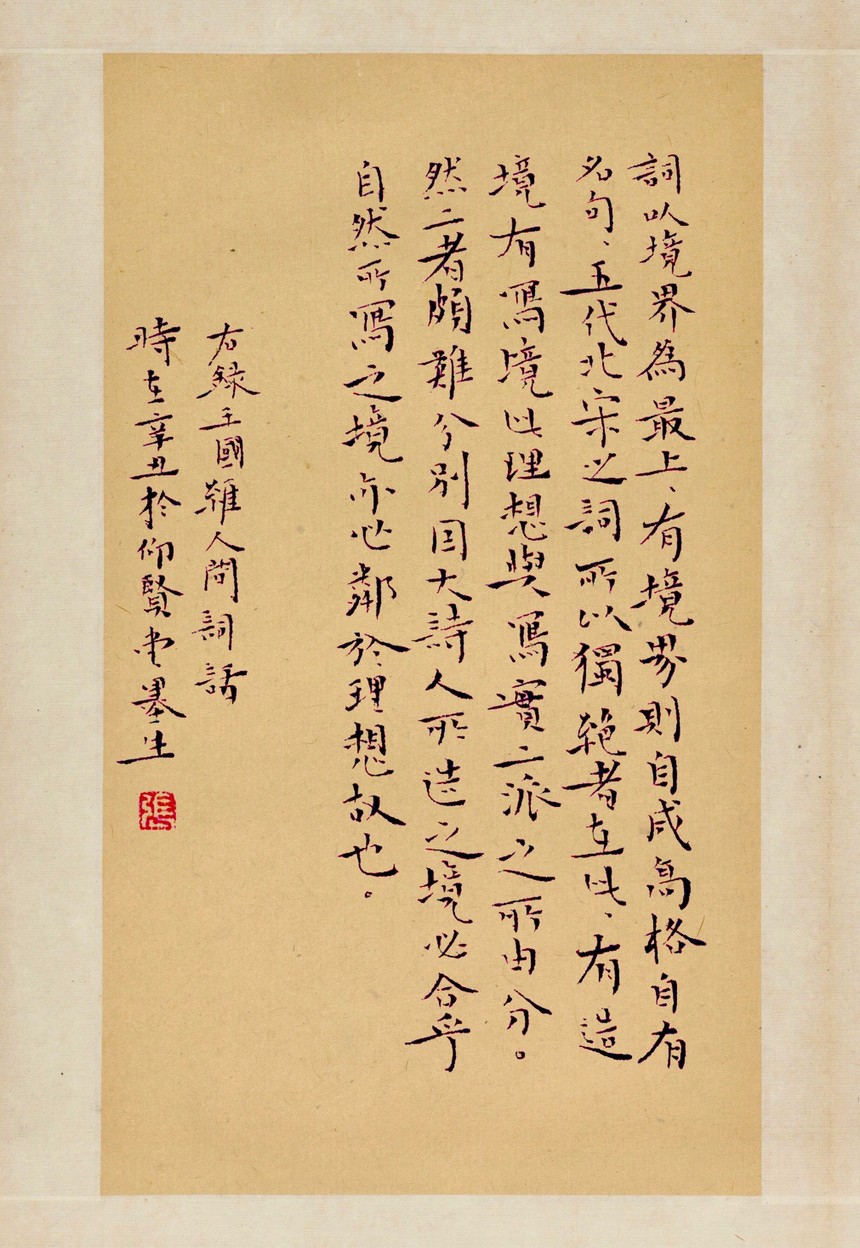 詞以境界為最上、有境界則自成高格自有
名句、五代北宋之詞所以獨絕者在此、有造
境有寫境此理想與寫實二派之所由分。
然二者頗難分別因大詩人所造之境必合乎
自然所寫之境亦必鄰於理想故也。
右録王國維人間詞話
時在辛丑於仰賢堂墨生
張